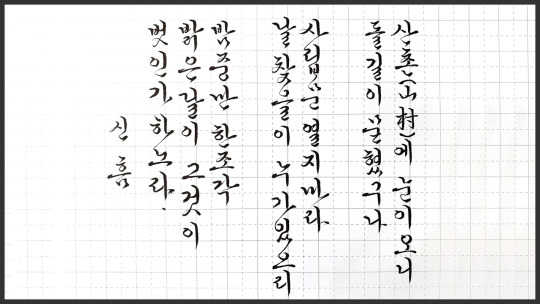 산촌(山村)에 눈이 오니
돌길이 묻혔구나
사립문 열지마라
날 찾을이 누가 있으리
밤중만 한조각
밝은 달이 그것이
벗인가 하노라.
신흠